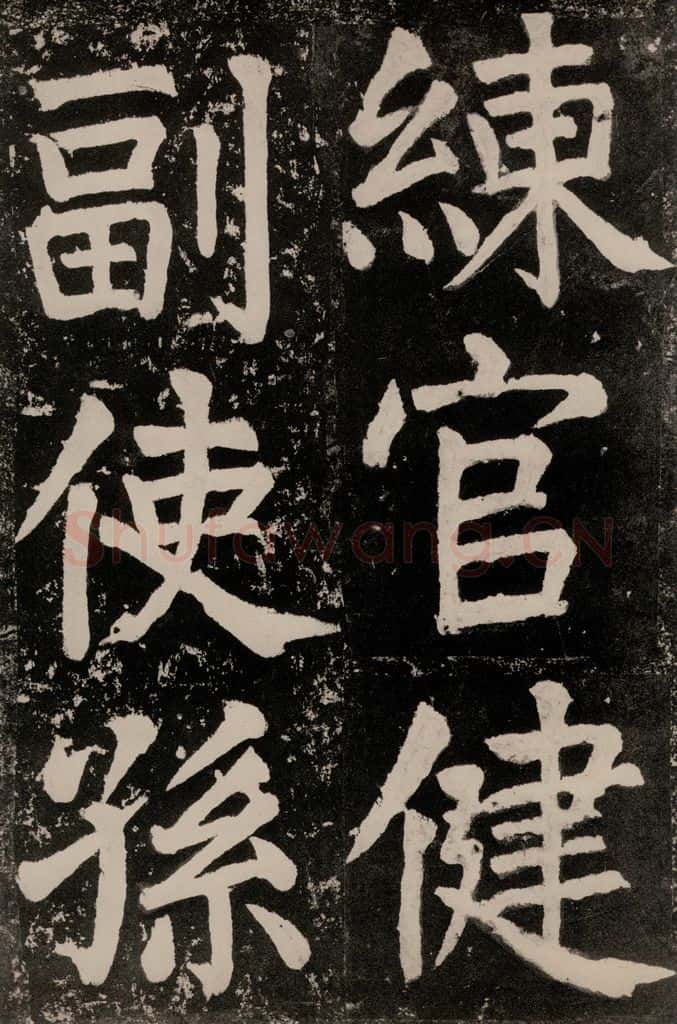 練官健
副使孫
Shufawang.CN